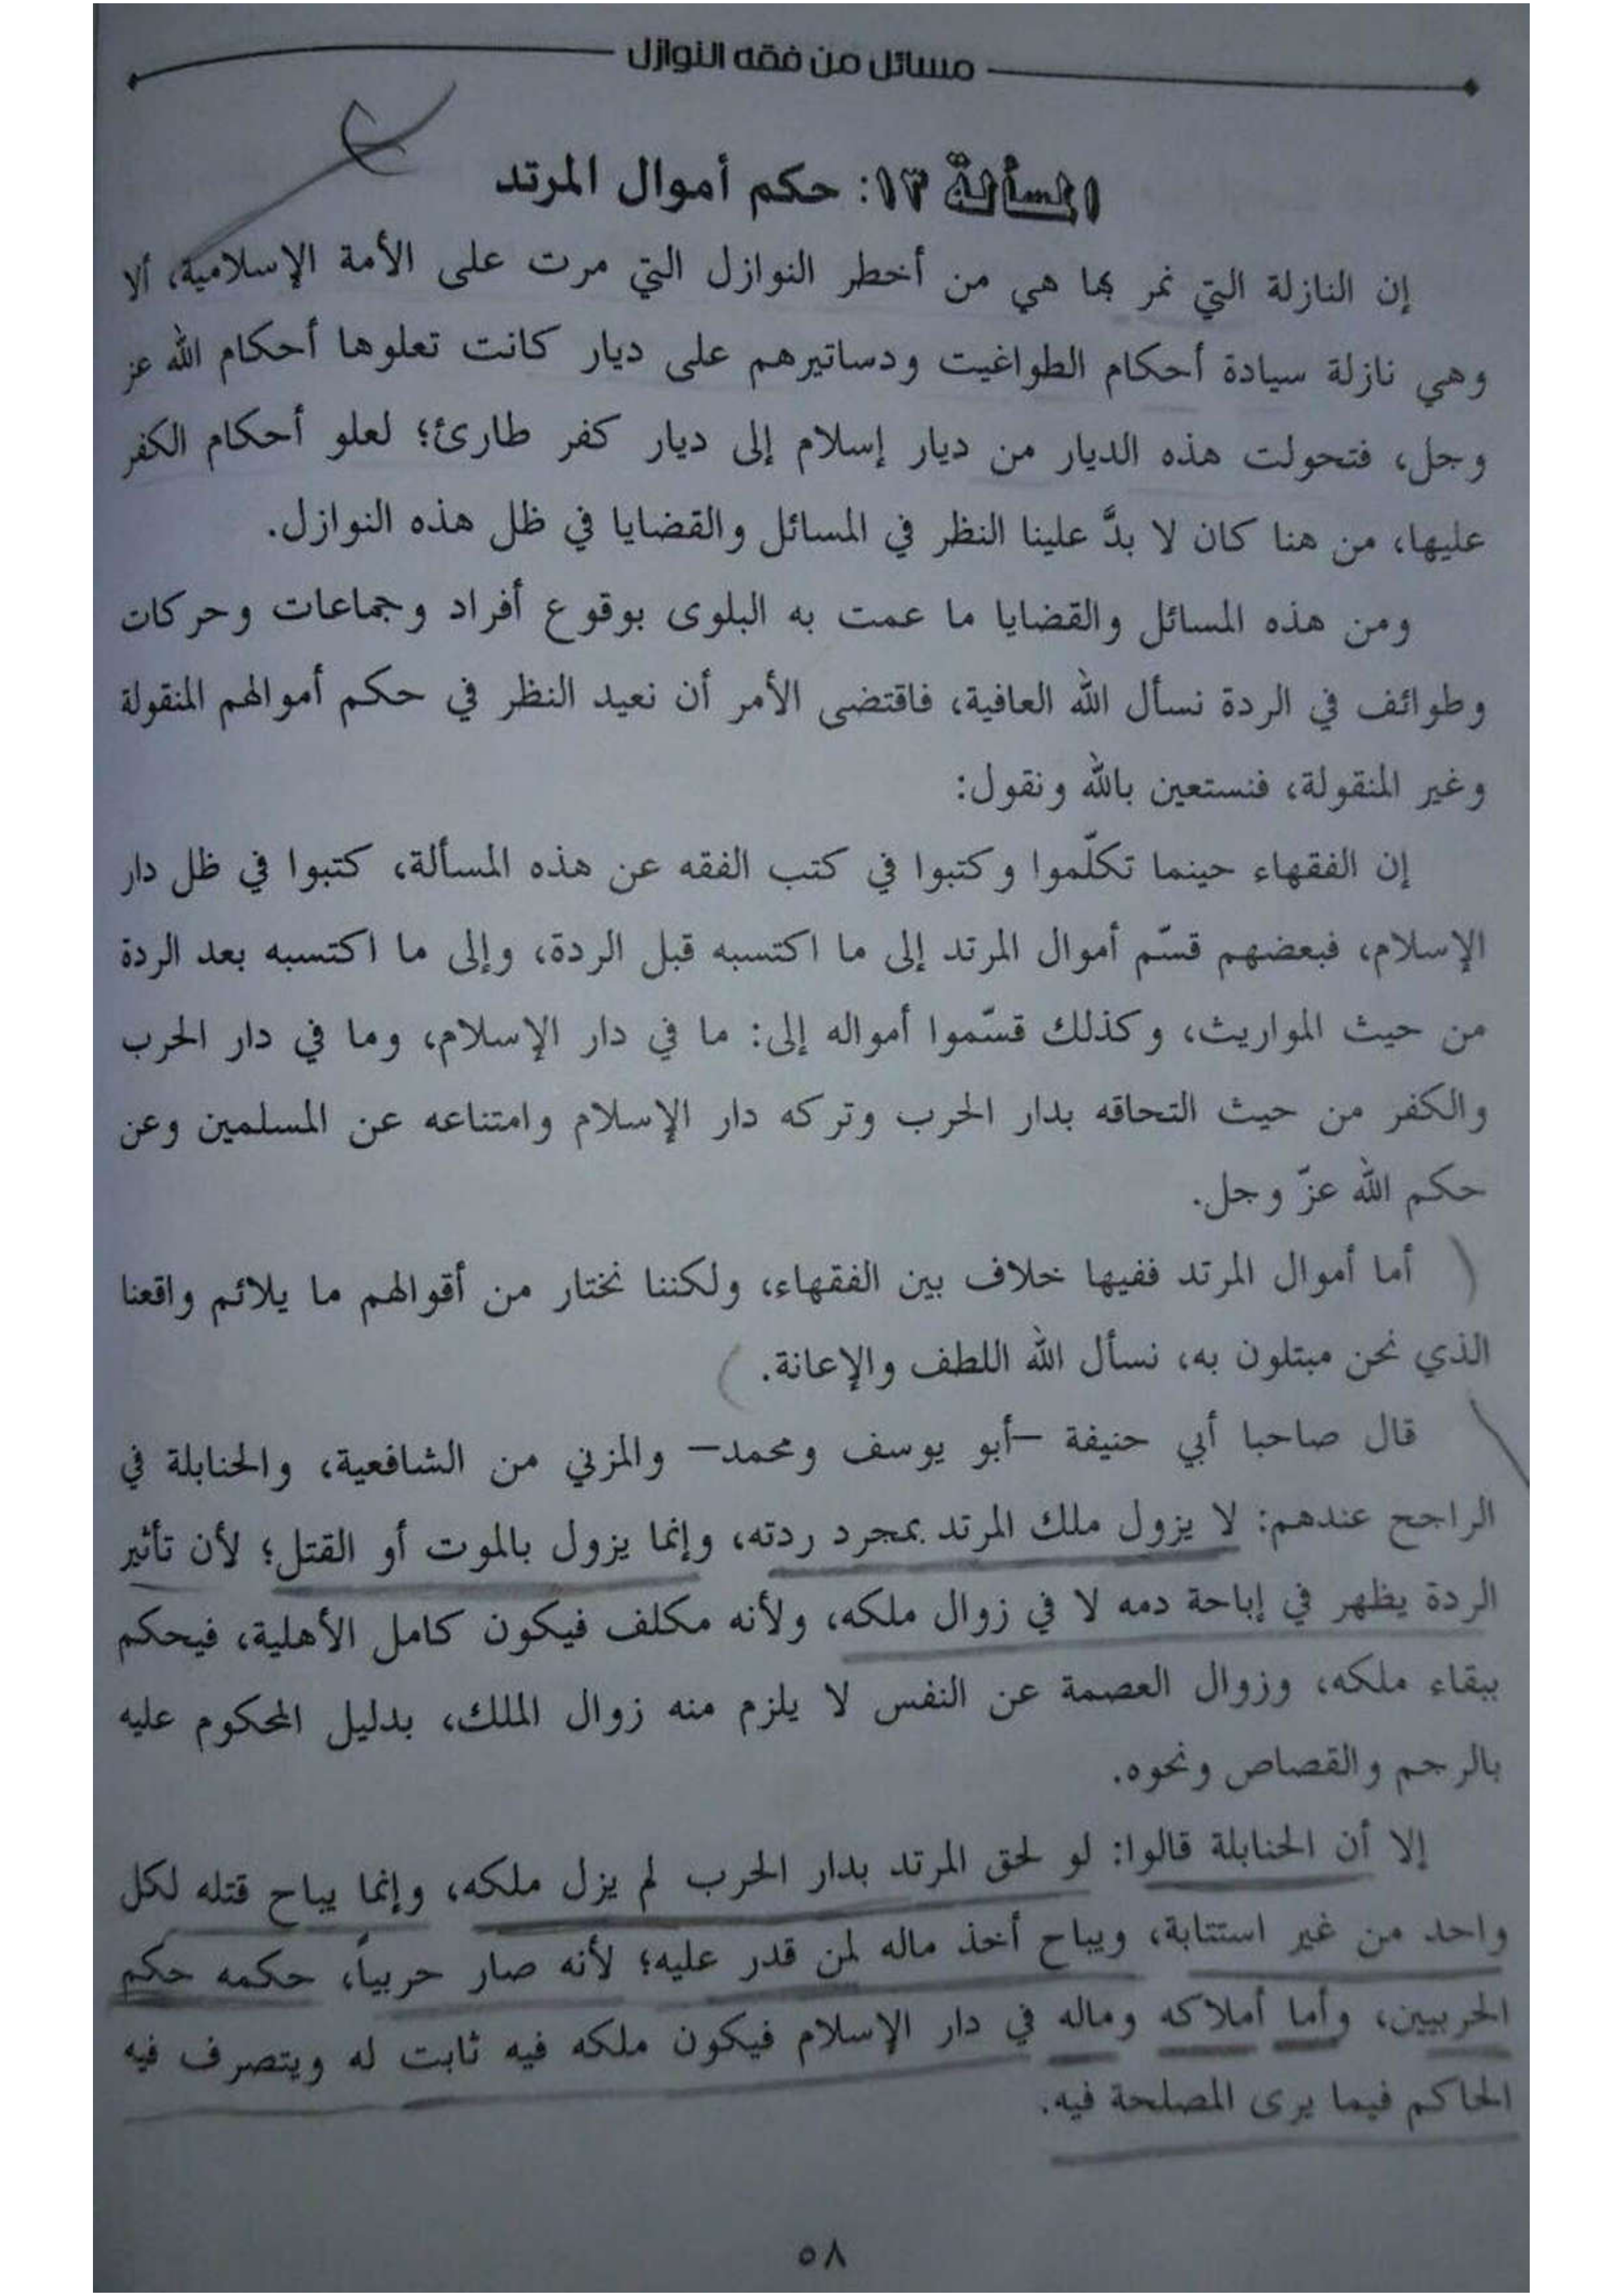 مسائل من فقه النوازل
المسألة ١٣: حكم أموال المرتد
إن النازلة التي نمر بها هي من أخطر النوازل التي مرت على الأمة الإسلامية، ألا
وهي نازلة سيادة أحكام الطواغيت ودساتيرهم على ديار كانت تعلوها أحكام الله عز
وجل، فتحولت هذه الديار من ديار إسلام إلى ديار كفر طارئ؛ لعلو أحكام الكفر
عليها، من هنا كان لا بدَّ علينا النظر في المسائل والقضايا في ظل هذه النوازل.
ومن هذه المسائل والقضايا ما عمت به البلوى بوقوع أفراد وجماعات وحركات
وطوائف في الردة نسأل الله العافية، فاقتضى الأمر أن نعيد النظر في حكم أموالهم المنقولة
وغير المنقولة، فنستعين بالله ونقول:
إن الفقهاء حينما تكلّموا وكتبوا في كتب الفقه عن هذه المسألة، كتبوا في ظل دار
الإسلام، فبعضهم قسّم أموال المرتد إلى ما اكتسبه قبل الردة، وإلى ما اكتسبه بعد الردة
من حيث المواريث، وكذلك قسّموا أمواله إلى: ما في دار الإسلام، وما في دار الحرب
والكفر من حيث التحاقه بدار الحرب وتركه دار الإسلام وامتناعه عن المسلمين وعن
حكم الله عزّ وجل.
أما أموال المرتد ففيها خلاف بين الفقهاء، ولكننا نختار من أقوالهم ما يلائم واقعنا
الذي نحن مبتلون به، نسأل الله اللطف والإعانة.
قال صاحبا أبي حنيفة –أبو يوسف ومحمد– والمزني من الشافعية، والحنابلة في
الراجح عندهم: لا يزول ملك المرتد بمجرد ردته، وإنما يزول بالموت أو القتل؛ لأن تأثير
الردة يظهر في إباحة دمه لا في زوال ملكه، ولأنه مكلف فيكون كامل الأهلية، فيحكم
ببقاء ملكه، وزوال العصمة عن النفس لا يلزم منه زوال الملك، بدليل المحكوم عليه
بالرجم والقصاص ونحوه.
إلا أن الحنابلة قالوا: لو لحق المرتد بدار الحرب لم يزل ملكه، وإنما يباح قتله لكل
واحد من غير استتابة، ويباح أخذ ماله لمن قدر عليه؛ لأنه صار حربياً، حكمه حكم
الحربيين، وأما أملاكه وماله في دار الإسلام فيكون ملكه فيه ثابت له ويتصرف فيه
الحاكم فيما يرى المصلحة فيه.
٥٨